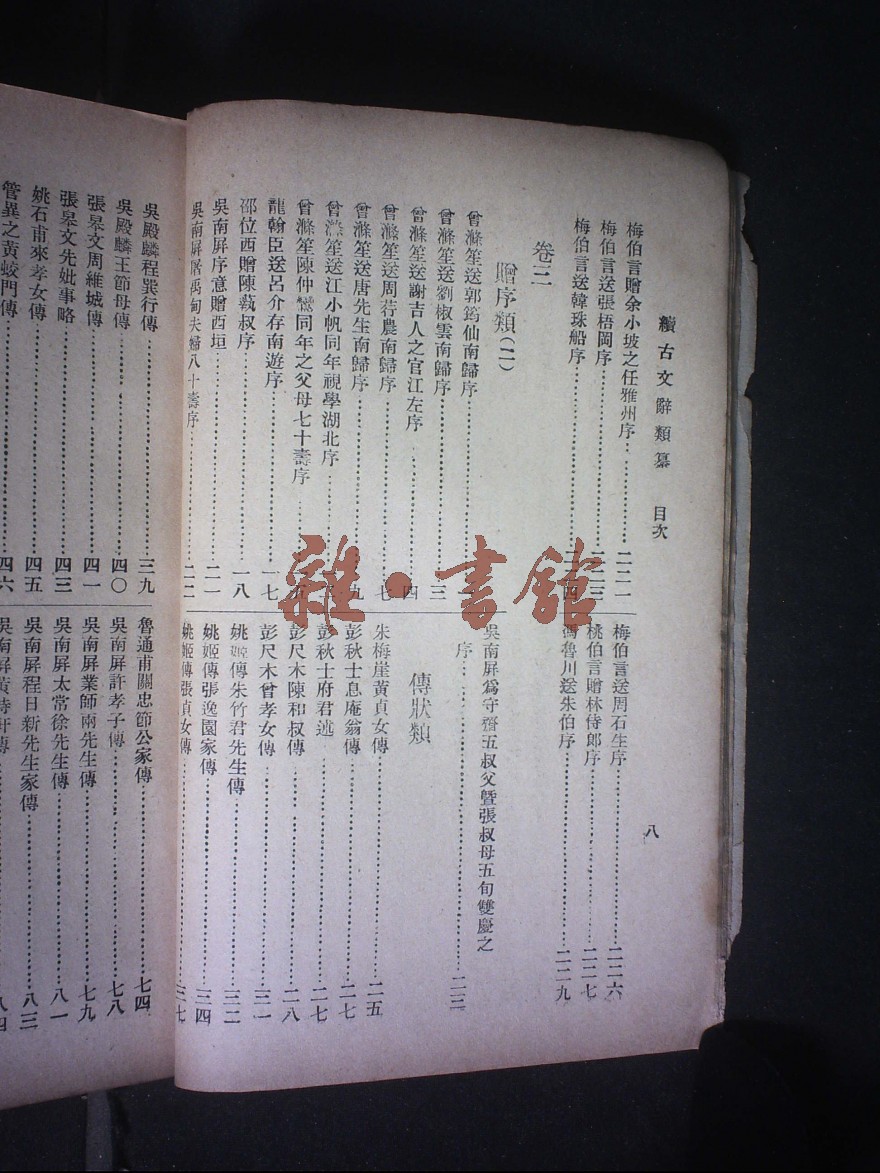 續古文辭類纂 目次
八
梅伯言贈余小坡之任雅州序⋯⋯二二一
梅伯言送張梧岡序⋯⋯二二三
梅伯言送韓珠船序⋯⋯二二四
卷三
贈序類(二)
曾滌笙送郭筠仙南歸序⋯⋯
曾滌笙送劉椒雲南歸序⋯⋯三
曾滌笙送謝吉人之官江左序⋯⋯四
曾滌笙送周荇農南歸序⋯⋯七
曾滌笙送唐先生南歸序⋯⋯九
曾滌笙送江小帆同年視學湖北序⋯⋯
曾滌笙陳仲鸞同年之父母七十壽序⋯⋯
龍翰臣送呂介存南遊序⋯⋯一七
邵位西贈陳蓺叔序⋯⋯一八
吳南屏序意贈西垣⋯⋯二一
吳南屏屠禹甸夫婦八十壽序⋯⋯二二
梅伯言送周石生序⋯⋯二二六
梅伯言贈林侍郎序⋯⋯二二七
馮魯川送朱伯序⋯⋯二二九
吳南屏爲守齋五叔父暨張叔母五旬雙慶之
序⋯⋯二三
傳狀類
朱梅崖黃貞女傳⋯⋯二五
彭秋士息庵翁傳⋯⋯二七
彭秋士府君述⋯⋯二七
彭尺木陳和叔傳⋯⋯二八
彭尺木曾孝女傳⋯⋯三一
姚姬傳朱竹君先生傳⋯⋯三二
姚姬傳張逸園家傳⋯⋯三四
姚姬傳張貞女傳⋯⋯三七
吳殿麟程巽行傳⋯⋯三九
吳殿麟王節母傳⋯⋯四〇
張皋文周維城傳⋯⋯四一
張皋文先妣事略⋯⋯四三
姚石甫來孝女傳⋯⋯四五
管異之黃蛟門傳⋯⋯四六
魯通甫關忠節公家傳⋯⋯七四
吳南屏許孝子傳⋯⋯七八
吳南屏業師兩先生傳⋯⋯七九
吳南屏太常徐先生傳⋯⋯八一
吳南屏程日新先生家傳⋯⋯八三
吳南屏黃特軒傳⋯⋯八四
雜·書館